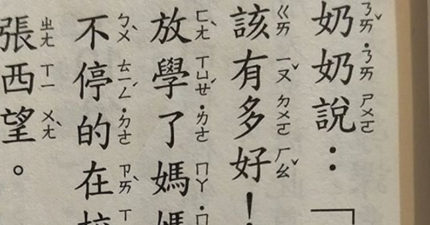 奶奶說：「
該有多好！
放學了媽媽
不停的在校
張西望。